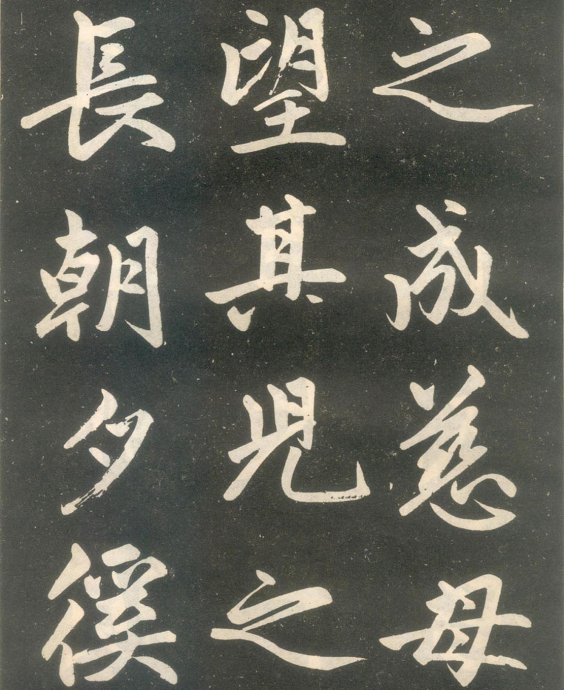 之成慈母
望其兒之
長朝夕徯